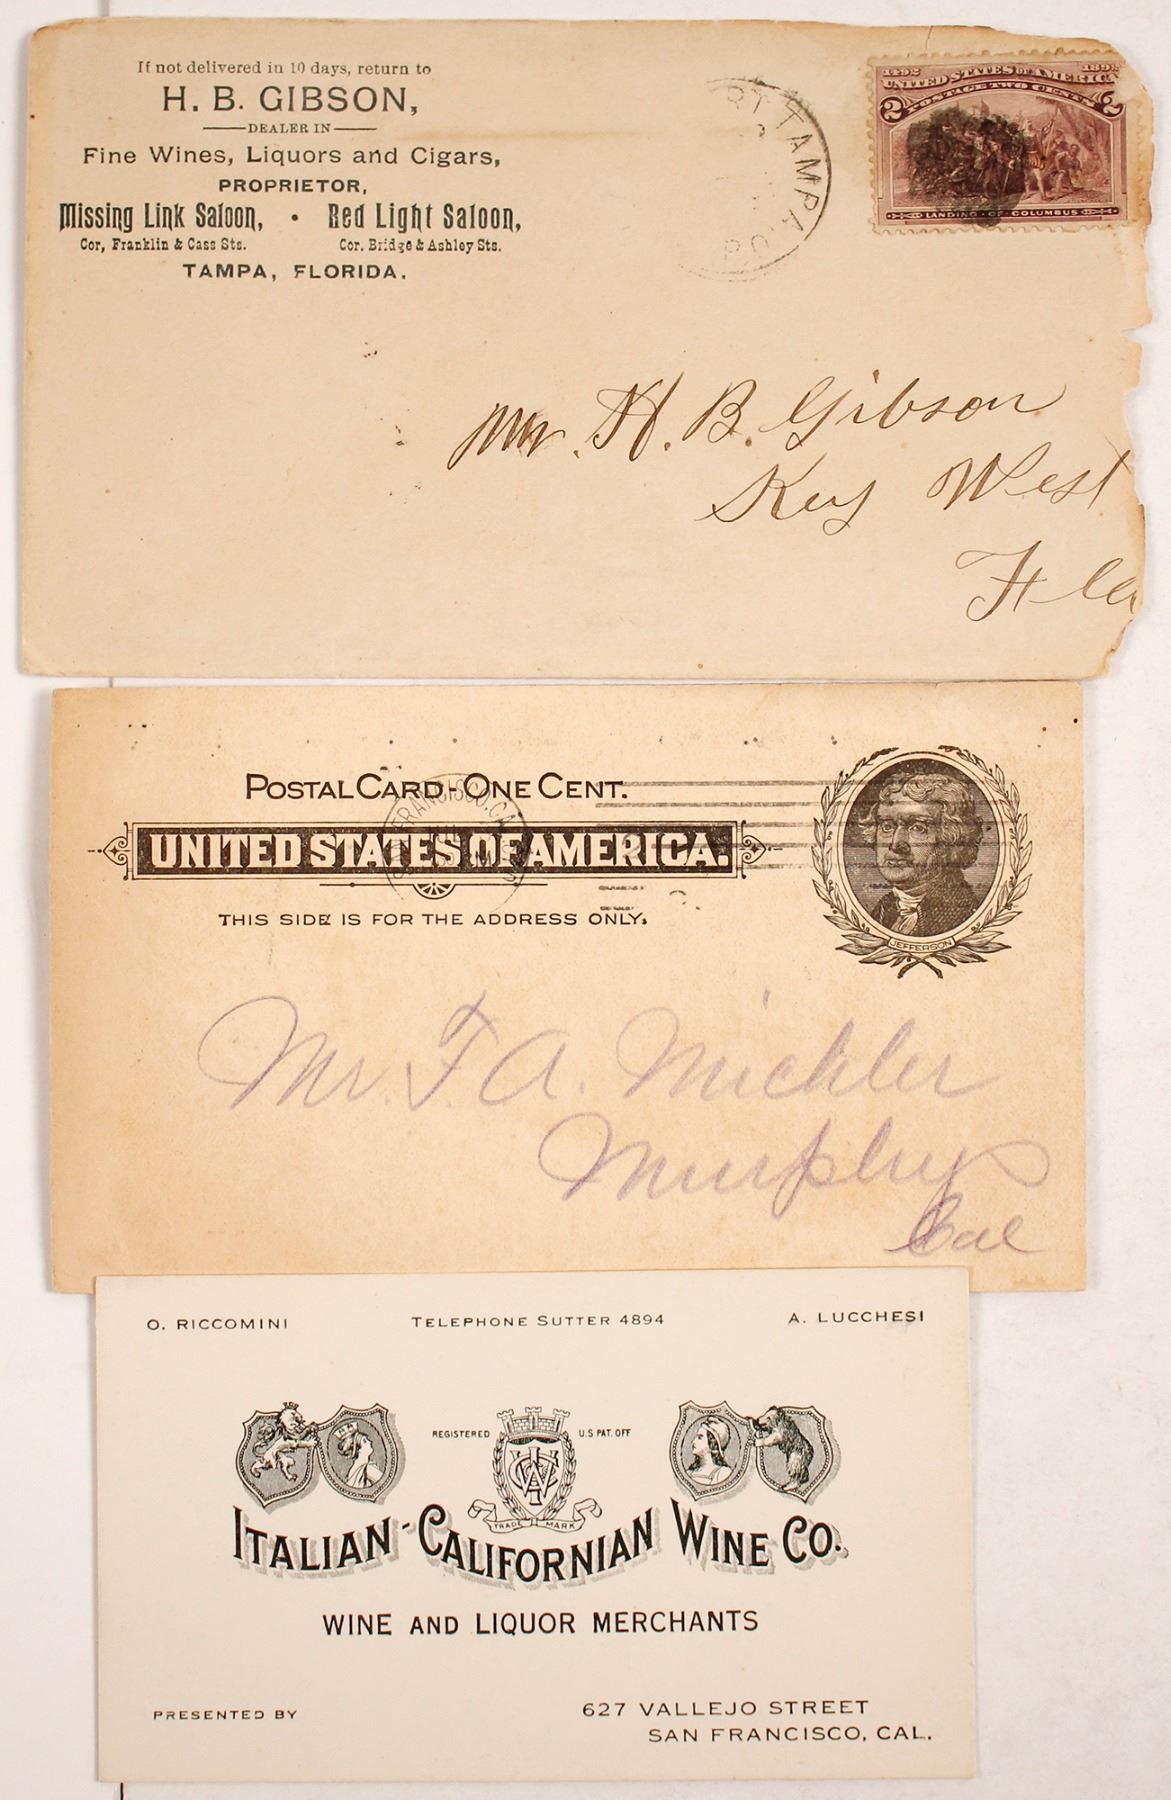 If not delivered in 10 days, return to
H. B. GIBSON,
DEALER IN
Fine Wines, Liquors and Cigars,
PROPRIETOR,
Missing Link Saloon, • Red Light Saloon,
Cor, Franklin & Cass Sts. Cor. Bridge & Ashley Sts.
TAMPA, FLORIDA.
RT TAMPA
1492 1892
UNITED STATES OF AMERICA
2 POSTAGE TWO CENTS 2
LANDING OF COLUMBUS
Mr. H. B. Gibson
Key West
Fla
POSTAL CARD - ONE CENT.
FRANCISCO, CA
UNITED STATES OF AMERICA.
THIS SIDE IS FOR THE ADDRESS ONLY.
JEFFERSON
Mr. F. A. Mickler
Murphys
Cal
O. RICCOMINI TELEPHONE SUTTER 4894 A. LUCCHESI
REGISTERED U.S. PAT. OFF
TRADE MARK
ITALIAN-CALIFORNIAN WINE CO.
WINE AND LIQUOR MERCHANTS
PRESENTED BY 627 VALLEJO STREET
SAN FRANCISCO, CAL.